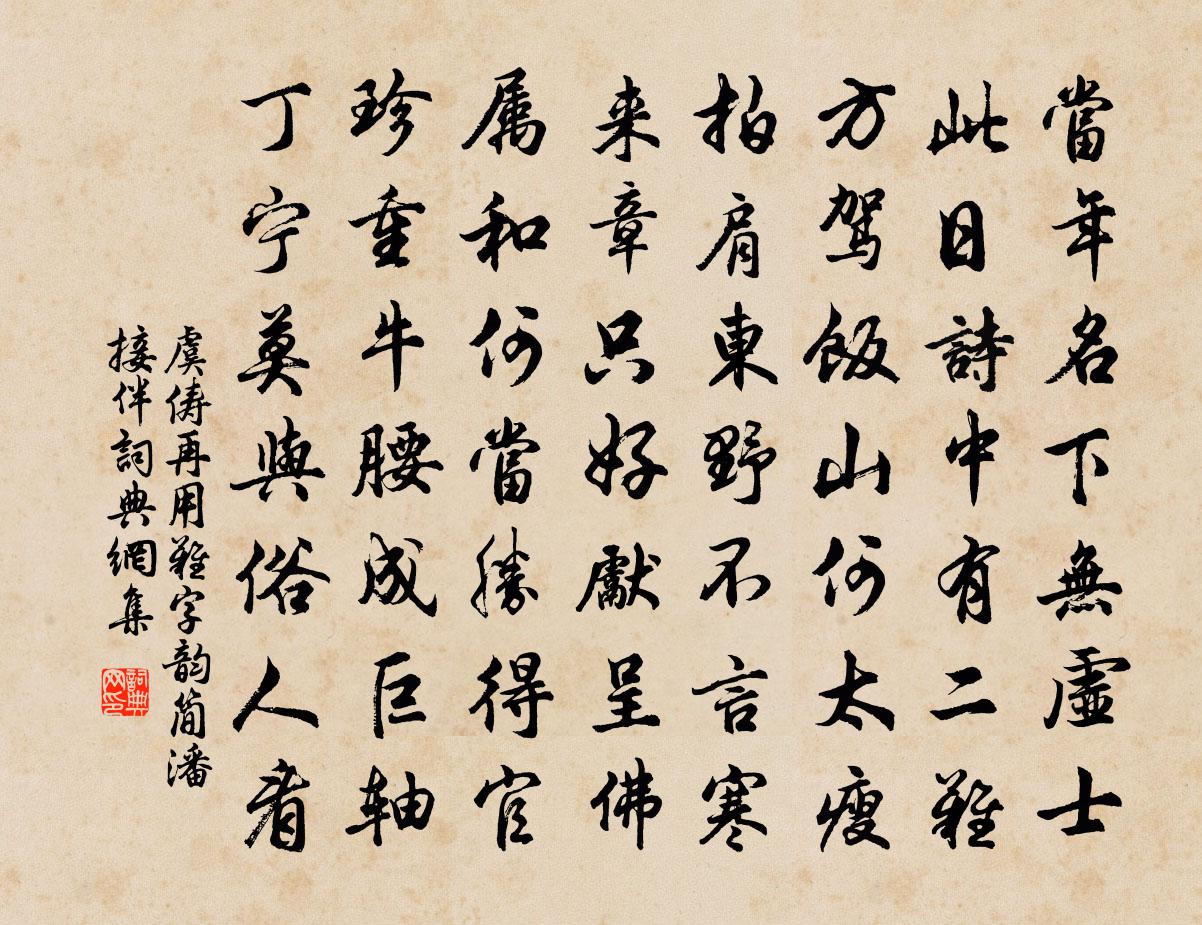 當年名下無虛士
此日詩中有二難
方駕飯山何太瘦
拍肩東野不言寒
来章只好獻呈佛
属和何當勝得官
珍重牛腰成巨軸
丁宁莫與俗人看
虞俦再用難字韵簡潘
接伴詞典網集
詞典网印